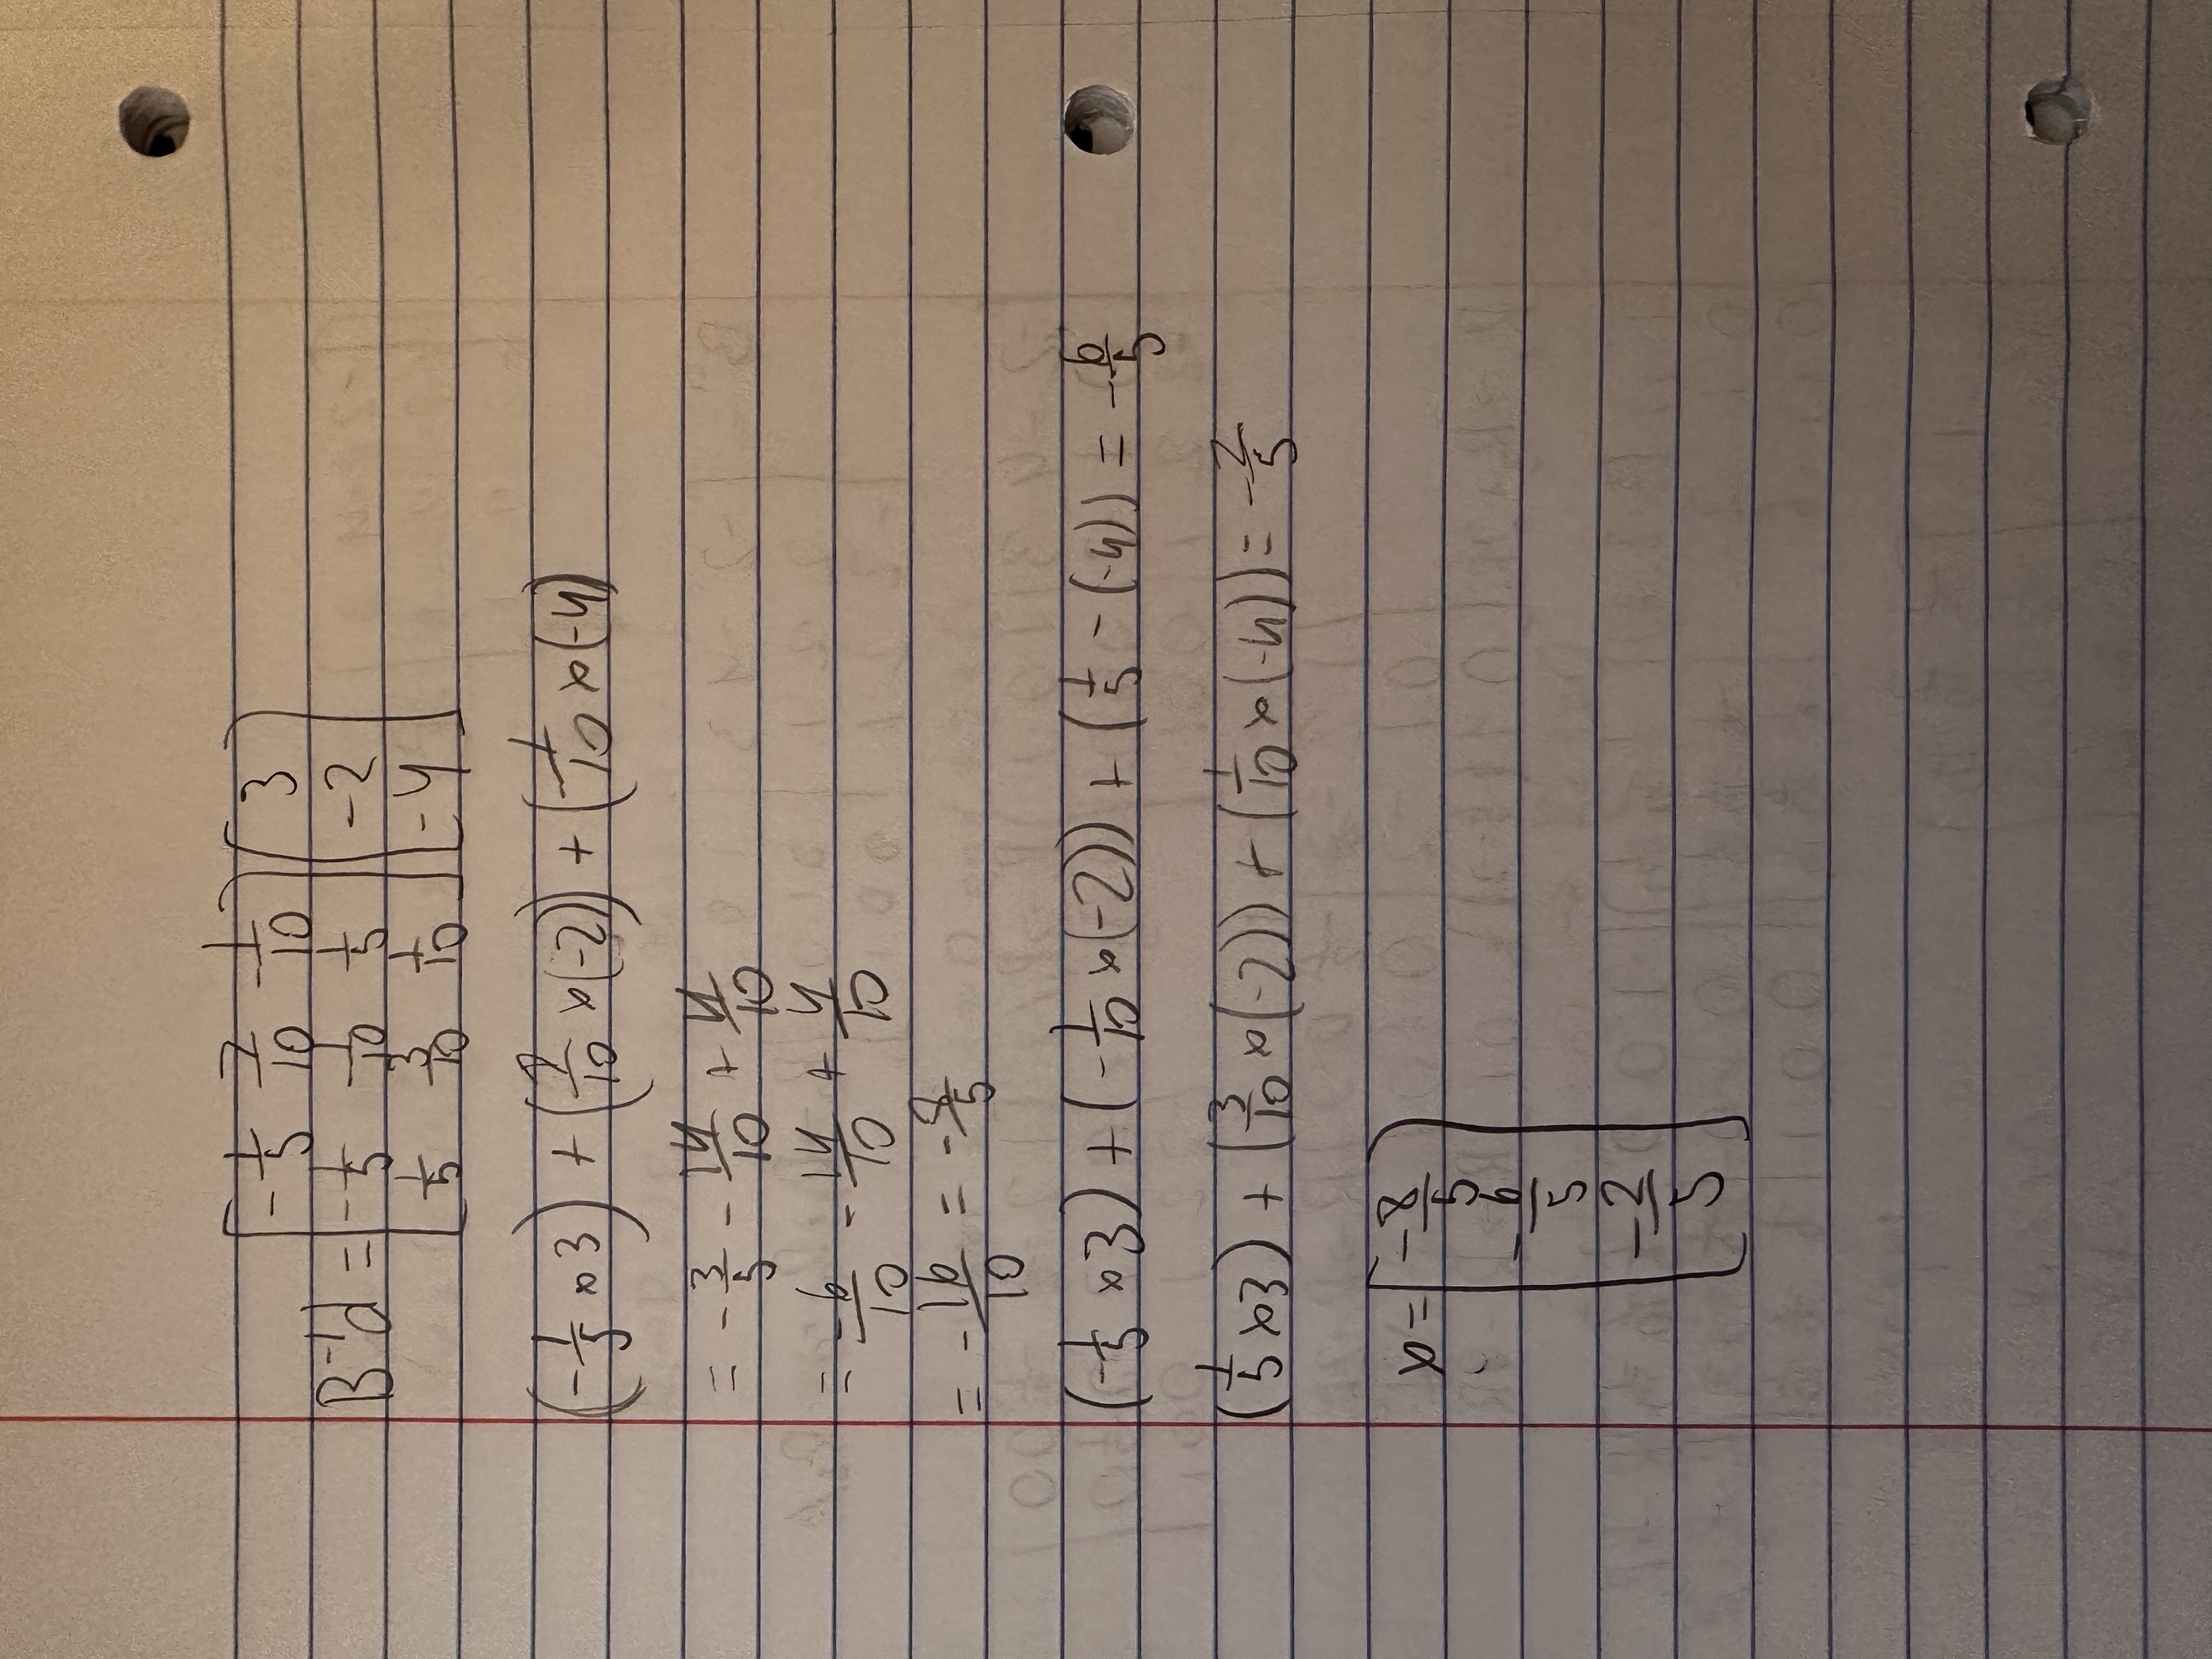 B⁻¹d = [ -1/5 7/10 -1/10 ; -1/5 -1/10 1/5 ; 1/5 3/10 1/10 ] [ 3 ; -2 ; -4 ]
(-1/5 x 3) + (7/10 x (-2)) + (-1/10 x (-4)
= -3/5 - 14/10 + 4/10
= -6/10 - 14/10 + 4/10
= -16/10 = -8/5
(-1/5 x 3) + (-1/10 x (-2)) + (1/5 - (-4)) = -6/5
(1/5 x 3) + (3/10 x (-2)) + (1/10 x (-4)) = -2/5
x = [ -8/5 ; -6/5 ; -2/5 ]